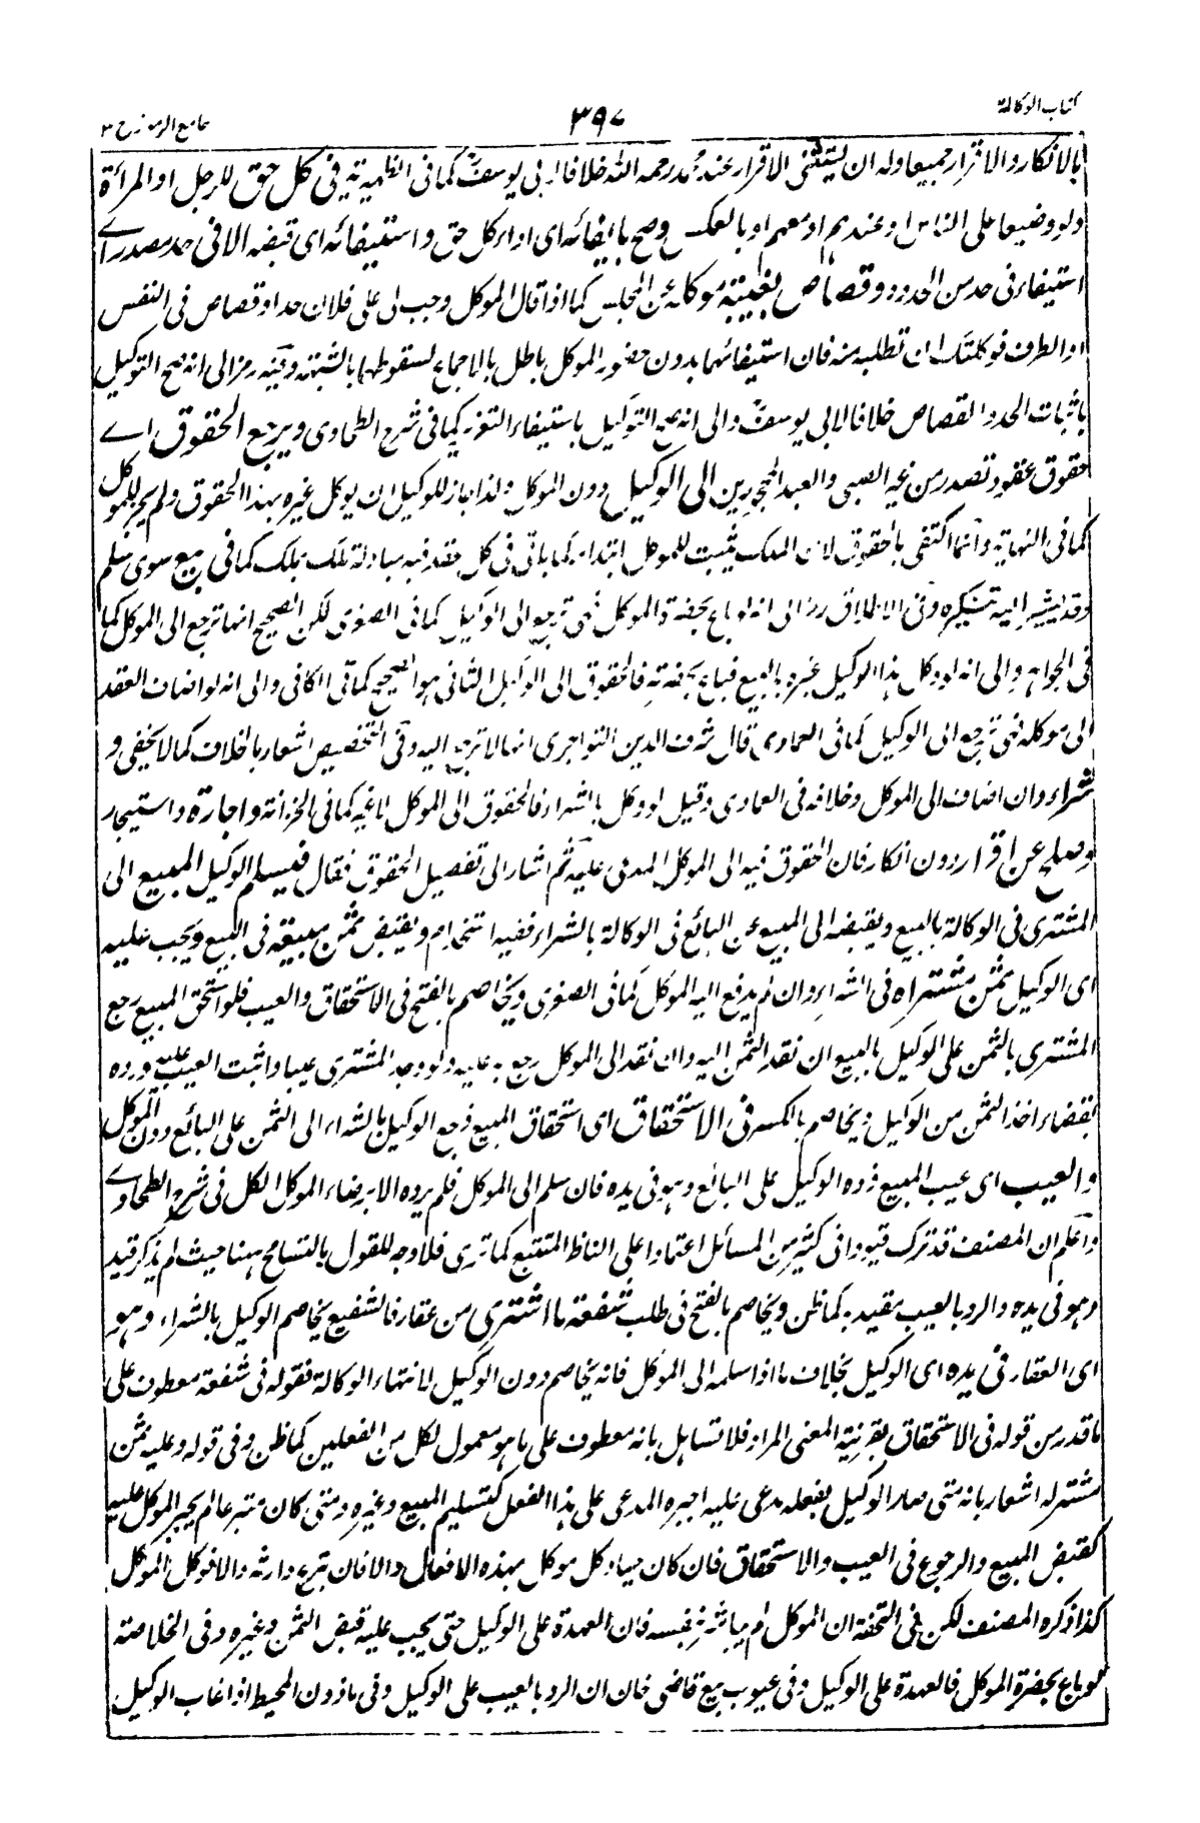 كتاب الوكالة
٣٩٧
جامع الرموز ج ٣
بالانكار والاقرار جميعا وله ان يستثنى الاقرار عند محمد رحمه الله خلافا لابي يوسف كما في الظهيرية في كل حق للرجل او المرأة
ولو وضيعا على الناس او عندهم او معهم او بالعكس وصح بايفائه اى اداء كل حق واستيفائه اى قبضه الا في حد مصدر اے
استيفاء في حد من الحدود وقصاص بغيبة موكله عن المجلس كما اذا قال الموكل وجب لى على فلان حد او قصاص فى النفس
او الطرف فوكلتك ان تطلبه منه فان استيفائهما بدون حضور الموكل باطل بالاجماع لسقوطهما بالشبهة وفيه رمز الى انه يصح التوكيل
باثبات الحد والقصاص خلافا لابى يوسف والى انه يصح التوكيل باستيفاء التعزير كما فى شرح الطحاوى ويرجع الحقوق اے
حقوق عقود تصدر من غير الصبى والعبد المحجورين الى الوكيل دون الموكل ولذا جاز للوكيل ان يوكل غيره بهذا الحقوق ولم يجز للموكل
كما فى النهاية وانما اكتفى بالحقوق لان الملك يثبت للموكل ابتداء كما ياتى فى كل عقد فيه مبادلة ملك بملك كما فى بيع سوى سلم
وقد يشير اليه تنكيره وفى الاطلاق رمز الى انه لو باع بحضرة الموكل فهى ترجع الى الوكيل كما فى الصغرى لكن الصحيح انها ترجع الى الموكل كما
فى الجواهر والى انه لو وكل هذا الوكيل غيره بالبيع فباع بحضرته فالحقوق الى الوكيل الثانى هو الصحيح كما فى الكافى والى انه لو اضاف العقد
الى موكله فهى ترجع الى الوكيل كما فى العمادى قال شرف الدين النواجرى انها لا ترجع اليه وفى التخصيص اشعار بالخلاف كما لا يخفى و
شراء وان اضاف الى الموكل وخلافه فى العمادى وقيل لو وكل بالشراء فالحقوق الى الموكل بلا غيره كما فى الخزانة واجارة واستيجار
وصلح عن اقرار دون انكار فان الحقوق فيه الى الموكل المدعى عليه ثم اشار الى تفصيل الحقوق فقال فيسلم الوكيل المبيع الى
المشترى فى الوكالة بالبيع ويقبضه الى المبيع عن البائع فى الوكالة بالشراء ففيه استخدام ويقبض ثمن مبيعه فى البيع ويجب عليه
اى الوكيل ثمن مشتراه فى الشراء وان لم يدفع اليه الموكل كما فى الصغرى ويخاصم بالفتح فى الاستحقاق والعيب فلو استحق المبيع رجع
المشترى بالثمن على الوكيل بالبيع ان نقد الثمن اليه وان نقد الى الموكل رجع به عليه ولو وجد المشترى عيبا واثبت العيب عليه ورده
بقضاء اخذ الثمن من الوكيل ويخاصم بالكسر فى الاستحقاق اى استحقاق المبيع فرجع الوكيل بالشراء الى الثمن على البائع دون الموكل
والعيب اى عيب المبيع فرده الوكيل على البائع وهو فى يده فان سلم الى الموكل فلم يرده الا برضاء الموكل الكل فى شرح الطحاوے
واعلم ان المصنف قد ترك قيودا فى كثير من المسائل اعتمادا على الناظر المتتبع كما ترى فلا وجه للقول بالتسامح ههنا حيث لم يذكر قيد
وهو فى يده والرد بالعيب مقيد به كما ظن ويخاصم بالفتح فى طلب شفعة ما اشترى من عقار فالشفيع يخاصم الوكيل بالشراء وهو
اى العقار فى يده اى الوكيل بخلاف ما اذا سلمه الى الموكل فانه يخاصم دون الوكيل لانتهاء الوكالة فقوله فى شفعة معطوف على
ما قدر من قوله فى الاستحقاق بقرينة المعنى المراد فلا تساهل بانه معطوف على ما هو معمول لكل من الفعلين كما ظن وفى قوله وعليه ثمن
مشتريه اشعار بانه متى صار الوكيل بفعله مدعى عليه اجبره المدعى على هذا الفعل كتسليم المبيع وغيره ومتى كان متبرعا لم يجبر الموكل عليه
كقبض المبيع والرجوع فى العيب والاستحقاق فان كان حيا وكل موكل بهذه الافعال والا فان تبرع وارثه والا فوكل الموكل
كذا ذكره المصنف لكن فى التحفة ان الموكل لم يباشر بنفسه فان العهدة على الوكيل حتى يجب عليه قبض الثمن وغيره وفى الخلاصة
لو باع بحضرة الموكل فالعهدة على الوكيل وفى عيوب بيع قاضى خان ان الرد بالعيب على الوكيل وفى ماذون المحيط اذا غاب الوكيل